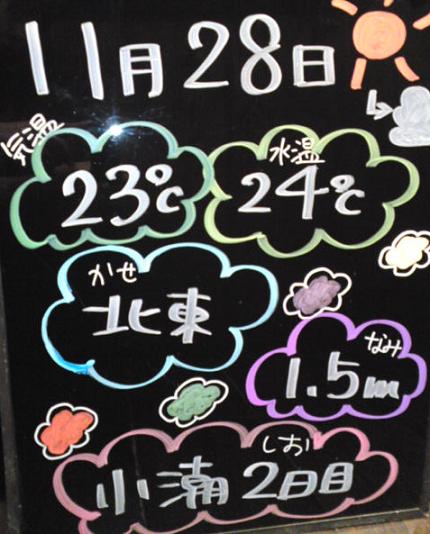 11月28日
気温
23℃
水温
24℃
かぜ
北東
なみ
1.5m
しお
小潮2日目